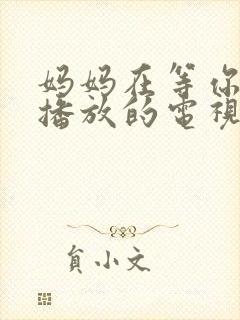 妈妈在等你
播放的電視
貟小文